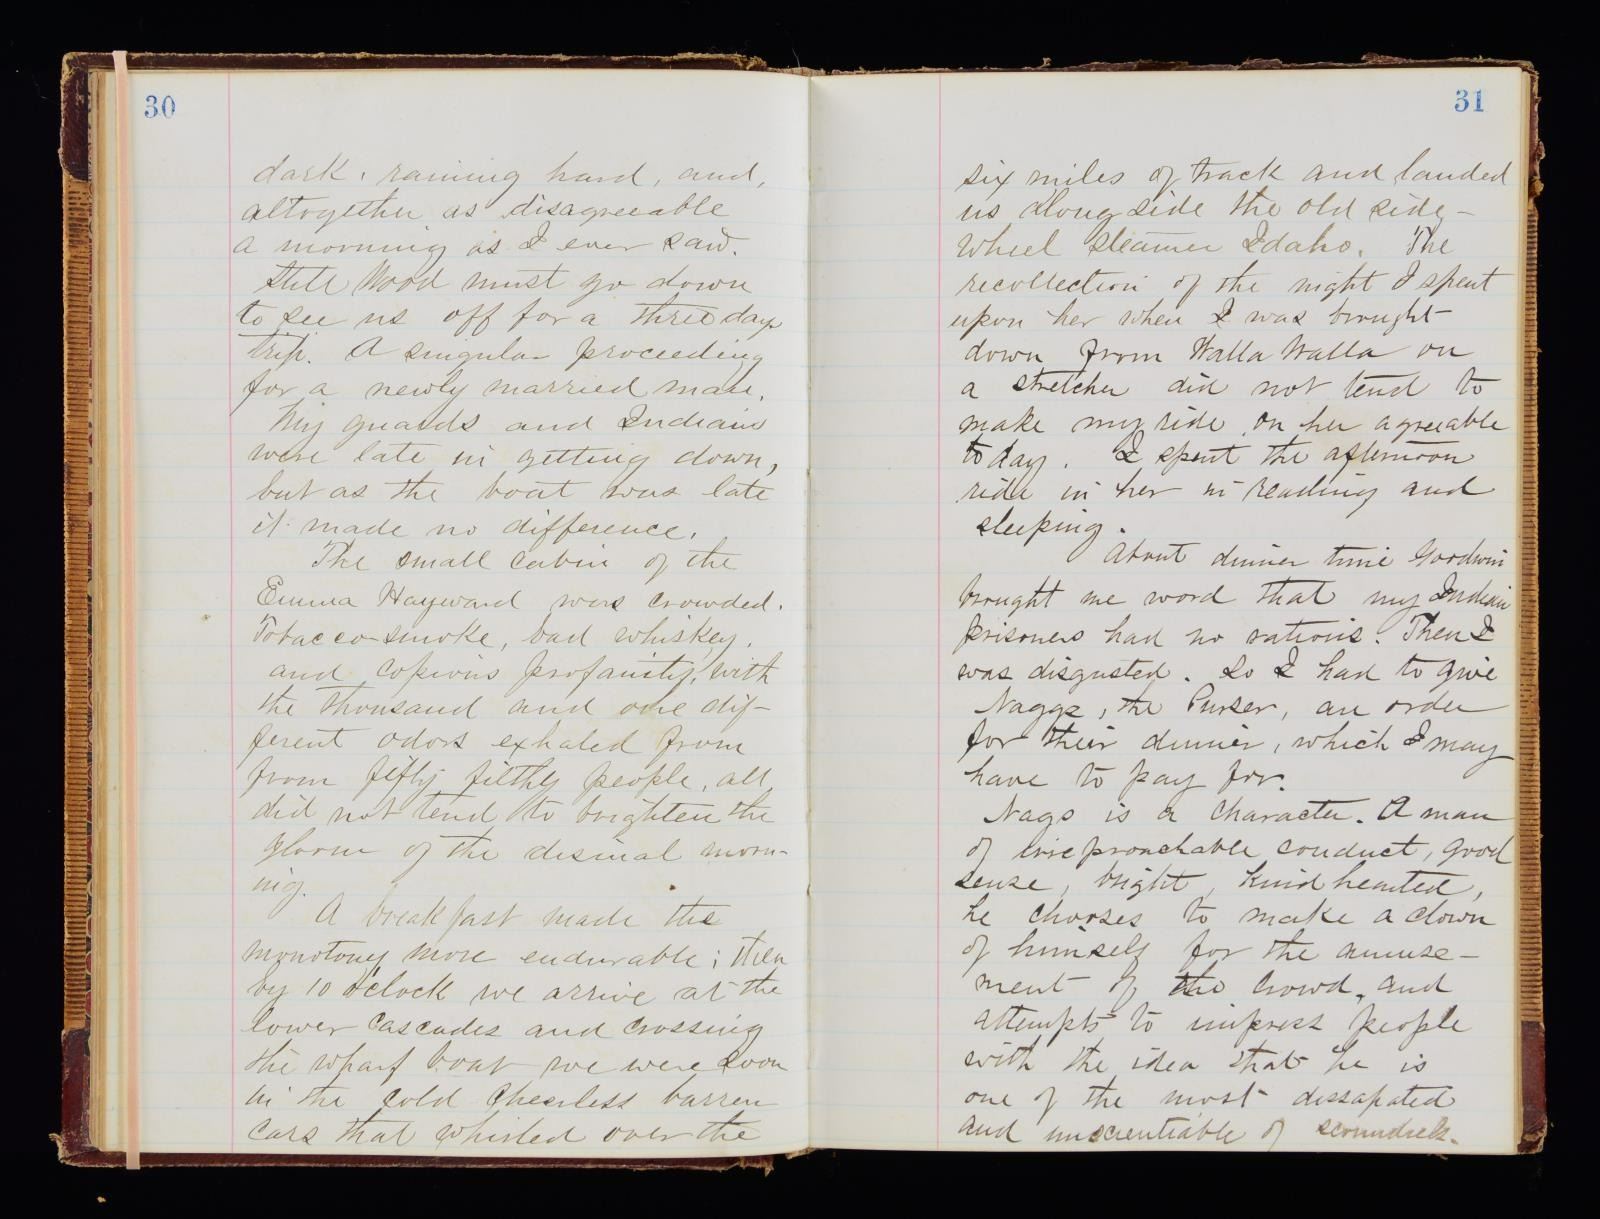 30
dark, raining hard, and,
altogether as disagreeable
a morning as I ever saw.
Still Wood must go down
to see us off for a three days
trip. A singular proceeding
for a newly married man.
My guards and Indians
were late in getting down,
but as the boat was late
it made no difference.
The small cabin of the
Emma Hayward was crowded.
Tobacco smoke, bad whiskey,
and copious profanity, with
the thousand and one dif-
ferent odors exhaled from
from fifty filthy people, all
did not tend to brighten the
gloom of the dismal morn-
ing.
A breakfast made the
monotony more endurable; then
by 10 o'clock we arrive at the
lower Cascades and crossing
the wharf boat we were soon
in the cold cheerless barren
cars that whirled over the
31
six miles of track and landed
us along side the old side-
wheel steamer Idaho. The
recollection of the night I spent
upon her when I was brought
down from Walla Walla on
a stretcher did not tend to
make my ride on her agreeable
to day. I spent the afternoon
ride in her in reading and
sleeping.
About dinner time Goodwin
brought me word that my Indian
prisoners had no rations. Then I
was disgusted. So I had to give
Naggs, the Purser, an order
for their dinner, which I may
have to pay for.
Nags is a character. A man
of irreproachable conduct, good
sense, bright, kind hearted,
he chooses to make a clown
of himself for the amuse-
ment of the crowd, and
attempts to impress people
with the idea that he is
one of the most dissapated
and of scoundrels.